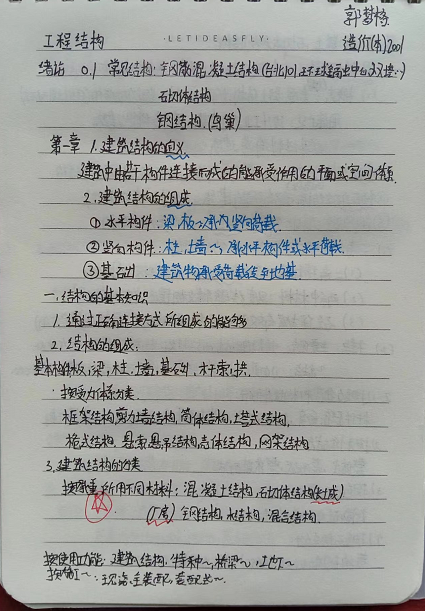 郭梦格
工程结构 ·LETIDEASFLY· 造价(本)2001
绪论 0.1 常见结构:钢筋混凝土结构(台北101,环球金融中心,双塔…)
砌体结构
钢结构.(鸟巢)
第一章 1.建筑结构的定义
建筑中由若干构件连接形成的能承受作用的平面或空间体系.
2.建筑结构的组成
①水平构件:梁,板~承竖向荷载.
②竖向构件:柱,墙~承水平构件或水平荷载.
③基础:建筑物承受荷载传至地基
一.结构的基本知识
1.通过正确连接方式所组成的能够
2.结构的组成:
基本构件板,梁,柱,墙,基础,杆,索,拱.
·按受力体系分类.
框架结构,剪力墙结构,筒体结构,塔式结构,
桅式结构.悬索,悬吊结构,壳体结构,网架结构
3.建筑结构的分类
按承重所用不同材料:混凝土结构,砌体结构(长城)
(厂房)钢结构,木结构,混合结构.
按使用功能:建筑结构.特种~,桥梁~,地下~
按施工~:现浇、装配、